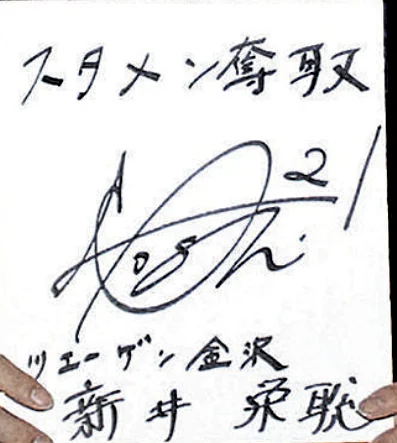 スタメン奪取
21
ツエーゲン金沢
新井 栄聡